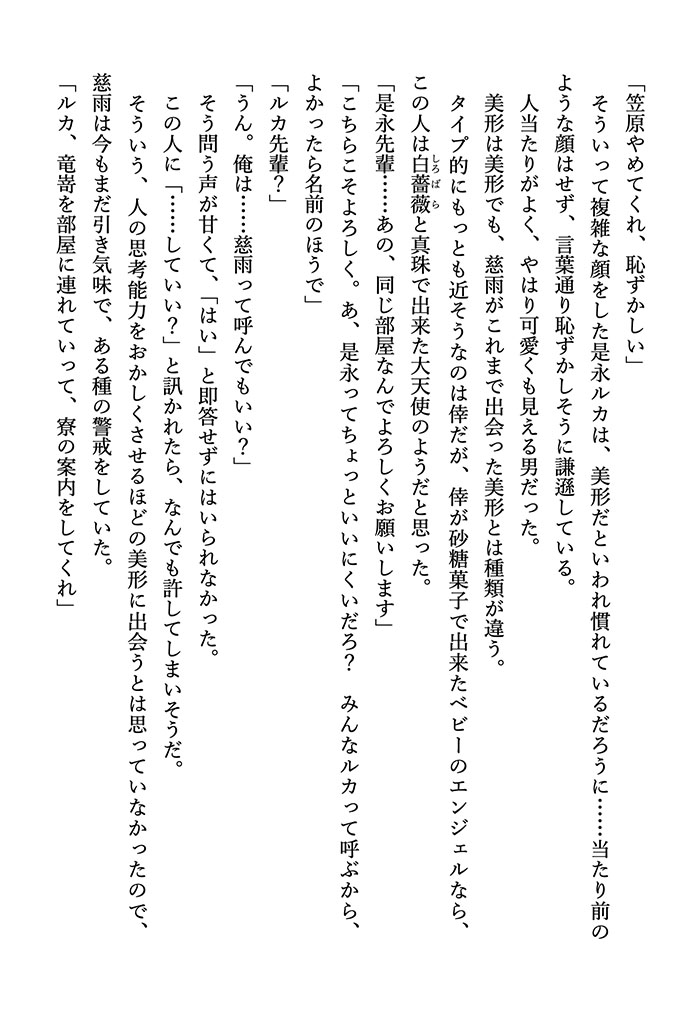 「笠原やめてくれ、恥ずかしい」
　そういって複雑な顔をした是永ルカは、美形だといわれ慣れているだろうに……当たり前の
ような顔はせず、言葉通り恥ずかしそうに謙遜している。
　人当たりがよく、やはり可愛くも見える男だった。
　美形は美形でも、慈雨がこれまで出会った美形とは種類が違う。
　タイプ的にもっとも近そうなのは倖だが、倖が砂糖菓子で出来たベビーのエンジェルなら、
この人は白薔薇と真珠で出来た大天使のようだと思った。
しろばら
「是永先輩……あの、同じ部屋なんでよろしくお願いします」
「こちらこそよろしく。あ、是永ってちょっといいにくいだろ？　みんなルカって呼ぶから、
よかったら名前のほうで」
「ルカ先輩？」
「うん。俺は……慈雨って呼んでもいい？」
　そう問う声が甘くて、「はい」と即答せずにはいられなかった。
　この人に「……していい？」と訊かれたら、なんでも許してしまいそうだ。
　そういう、人の思考能力をおかしくさせるほどの美形に出会うとは思っていなかったので、
慈雨は今もまだ引き気味で、ある種の警戒をしていた。
「ルカ、竜嵜を部屋に連れていって、寮の案内をしてくれ」